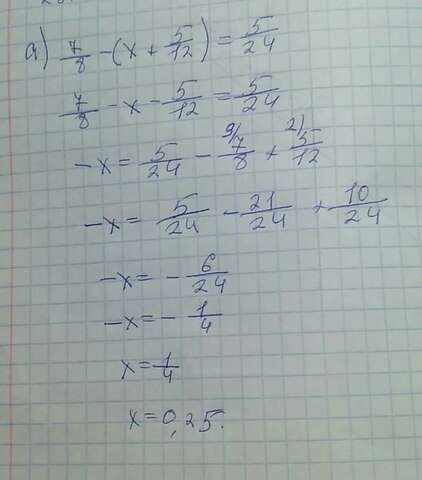 а) 7/8 - (x + 5/12) = 5/24
7/8 - x - 5/12 = 5/24
-x = 5/24 - 3) 7/8 + 2) 5/12
-x = 5/24 - 21/24 + 10/24
-x = - 6/24
-x = - 1/4
x = 1/4
x = 0,25.